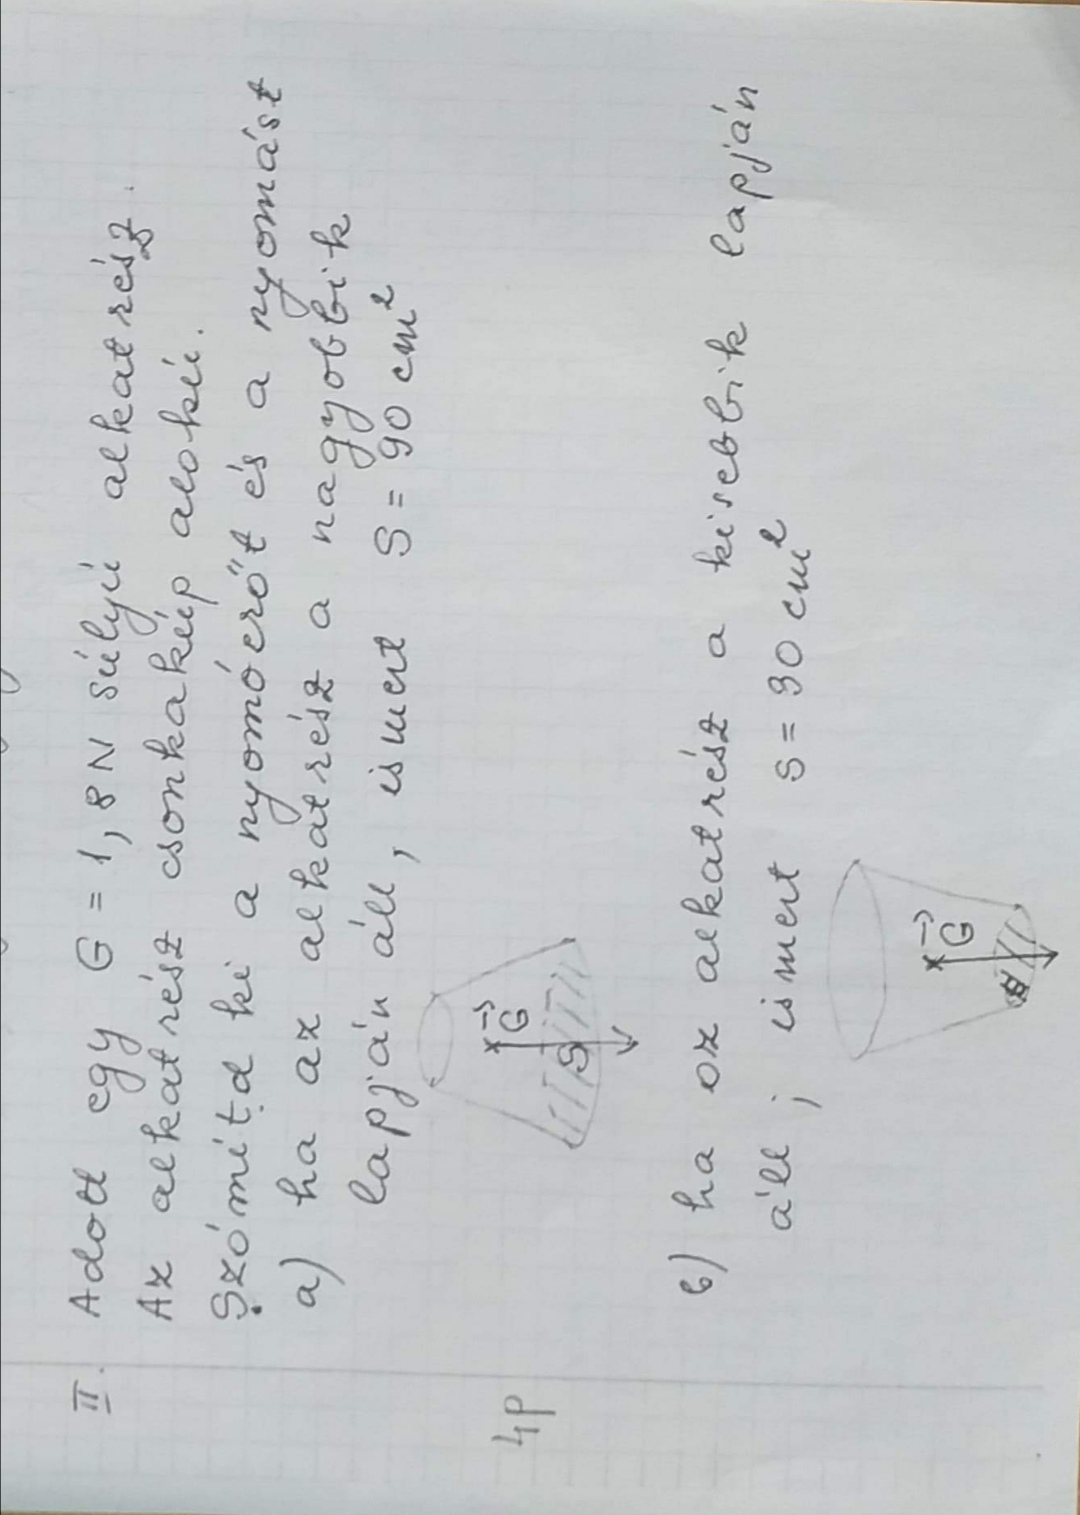 II. Adott egy G = 1,8N súlyú alkatrész.
Az alkatrész csonkakúp alakú.
Számítd ki a nyomóerőt és a nyomást
a) ha az alkatrész a nagyobbik
lapján áll, ismert S = 90 cm²
G
S
4p
b) ha az alkatrész a kisebbik lapján
áll; ismert S = 30 cm²
G